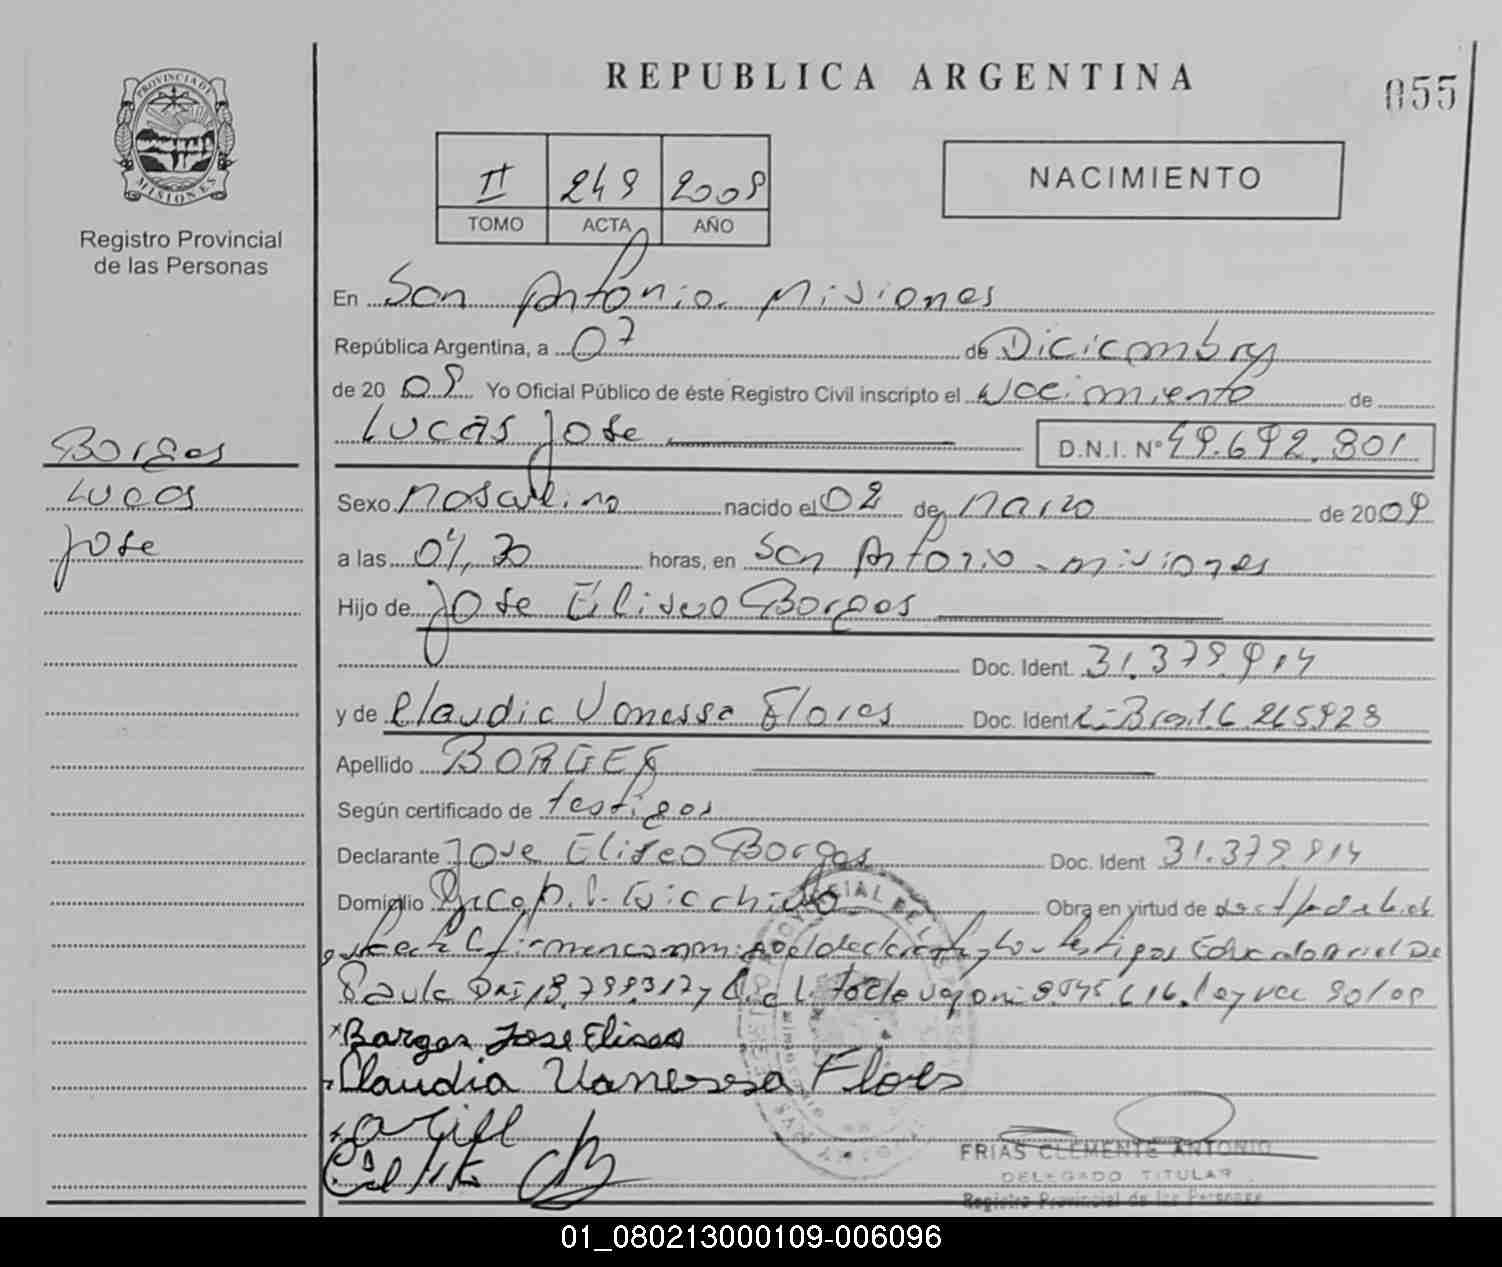 REPUBLICA ARGENTINA
055
PROVINCIA DE
MISIONES
Registro Provincial
de las Personas
II 249 2009
TOMO ACTA AÑO
NACIMIENTO
En San Antonio. Misiones
República Argentina, a 07 de Diciembre
de 20 09 Yo Oficial Público de éste Registro Civil inscripto el Nacimiento de
Lucas Jose D.N.I. Nº 49.692.801
Borges
Lucas
Jose
Sexo Masculino nacido el 02 de Marzo de 2009
a las 04,30 horas, en San Antonio - misiones
Hijo de Jose Eliseo Borges
Doc. Ident. 31.379.914
y de Claudia Vanessa Flores Doc. Ident
Apellido BORGES
Según certificado de testigos
Declarante Jose Eliseo Borges Doc. Ident 31.379.914
Domicilio Obra en virtud de
Paula DNI 18.799.317 y
Borges Jose Eliseo
Claudia Vanessa Flores
FRIAS CLEMENTE ANTONIO
DELEGADO TITULAR
Registro Provincial de las Personas
01_080213000109-006096